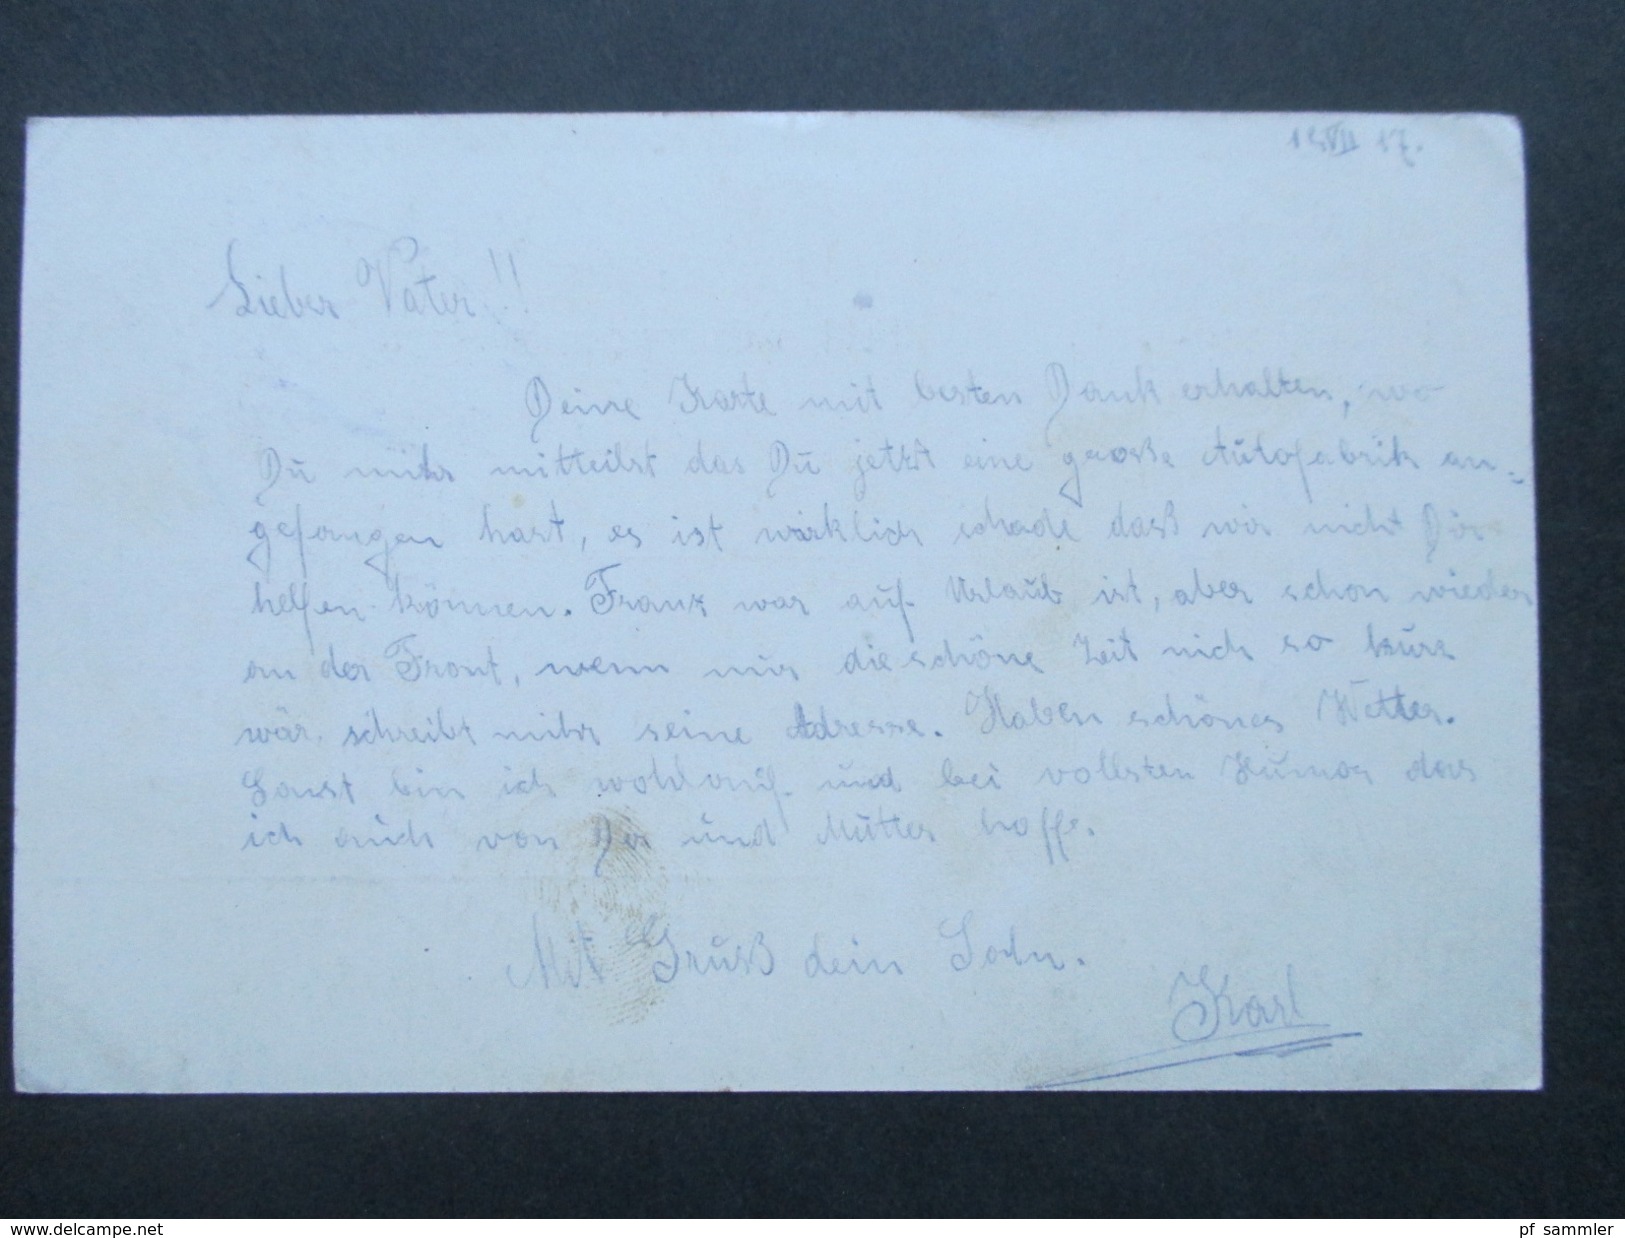 VII 17.
Lieber Vater!!
Deine Karte mit besten Dank erhalten, wo
Du mihr mitteilst das Du jetzt eine große Autofabrik an-
gefangen hast, es ist wirklich schade daß wir nicht Dir
helfen können. Franz war auf Urlaub ist, aber schon wieder
an der Front, wenn nur die schöne Zeit nich so kurz
wär. schreibt mihr seine Adresse. Haben schönes Wetter.
Sonst bin ich wohlauf und bei vollsten Humor das
ich auch von Dir und Mutter hoffe.
Mit Gruß dein Sohn.
Karl
www.delcampe.net
pf_sammler